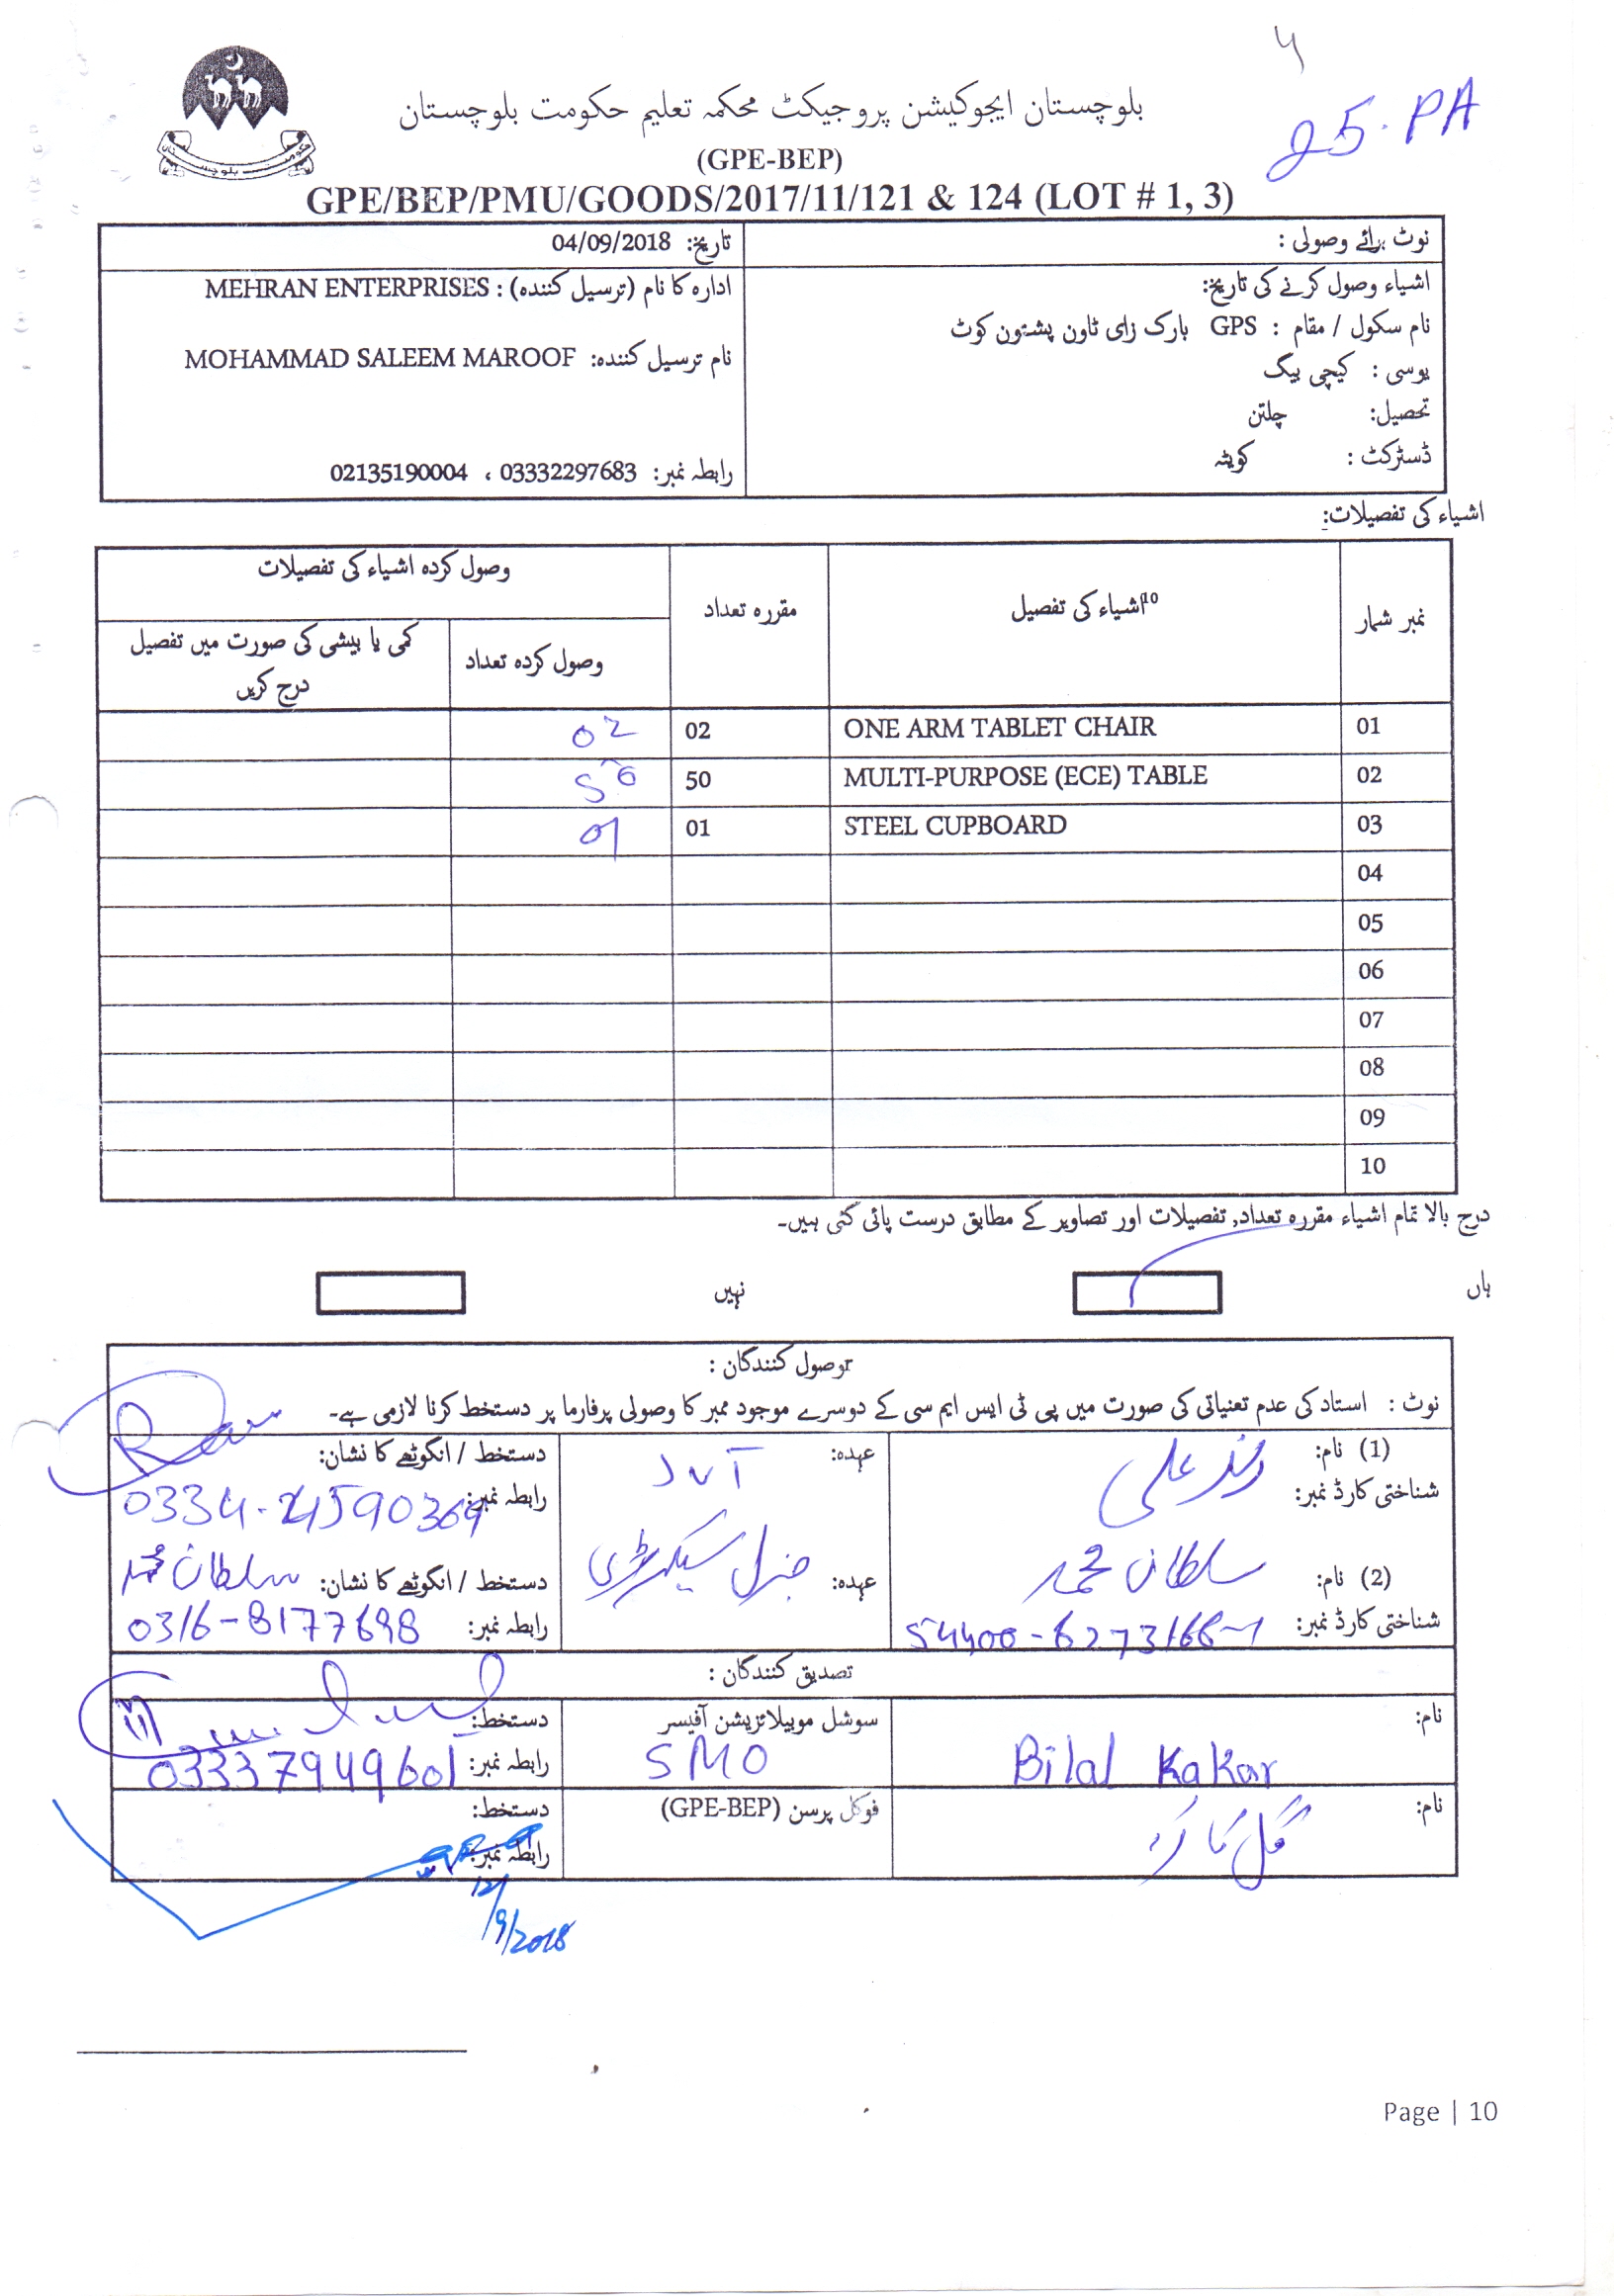 25. PA
بلوچستان ایجوکیشن پروجیکٹ محکمہ تعلیم حکومت بلوچستان
(GPE-BEP)
GPE/BEP/PMU/GOODS/2017/11/121 & 124 (LOT # 1, 3)
نوٹ برائے وصولی :
اشیاء وصول کرنے کی تاریخ:
نام سکول / مقام : GPS بارک زای ٹاون پشتون کوٹ
یوسی : کیچی بیگ
تحصیل: چلتن
ڈسٹرکٹ : کویٹہ
تاریخ: 04/09/2018
ادارہ کا نام (ترسیل کنندہ) : MEHRAN ENTERPRISES
نام ترسیل کنندہ: MOHAMMAD SALEEM MAROOF
رابطہ نمبر: 03332297683 ، 02135190004
اشیاء کی تفصیلات:
نمبر شمار اشیاء کی تفصیل10 مقررہ تعداد وصول کردہ اشیاء کی تفصیلات
وصول کردہ تعداد کمی یا بیشی کی صورت میں تفصیل درج کریں
01 ONE ARM TABLET CHAIR 02 02
02 MULTI-PURPOSE (ECE) TABLE 50 50
03 STEEL CUPBOARD 01 01
04
05
06
07
08
09
10
درج بالا تمام اشیاء مقررہ تعداد, تفصیلات اور تصاویر کے مطابق درست پائی گئی ہیں۔
ہاں نہیں
وصول کنندگان :
نوٹ : استاد کی عدم تعنیاتی کی صورت میں پی ٹی ایس ایم سی کے دوسرے موجود ممبر کا وصولی پرفارما پر دستخط کرنا لازمی ہے۔
(1) نام: عہدہ: JVT دستخط / انگوٹھے کا نشان:
شناختی کارڈ نمبر: رابطہ نمبر:
(2) نام: سلطان محمد عہدہ: جنرل سیکریٹری دستخط / انگوٹھے کا نشان: سلطان محمد
شناختی کارڈ نمبر: 54400-6273166-1 رابطہ نمبر: 0316-8177698
تصدیق کنندگان :
نام: Bilal Kakar سوشل موبیلائزیشن آفیسر SMO دستخط:
رابطہ نمبر: 03337949601
نام: فوکل پرسن (GPE-BEP) دستخط:
رابطہ نمبر:
12/9/2018
Page | 10